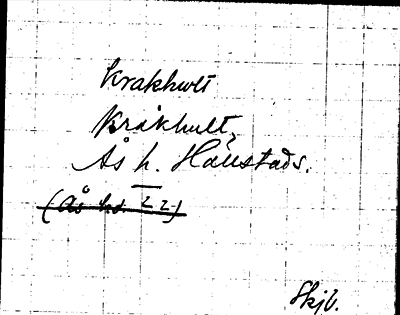 Krakhult
Kråkhult,
Ås h. Hallstads.
(Ås hd. I 22)
Skjb.